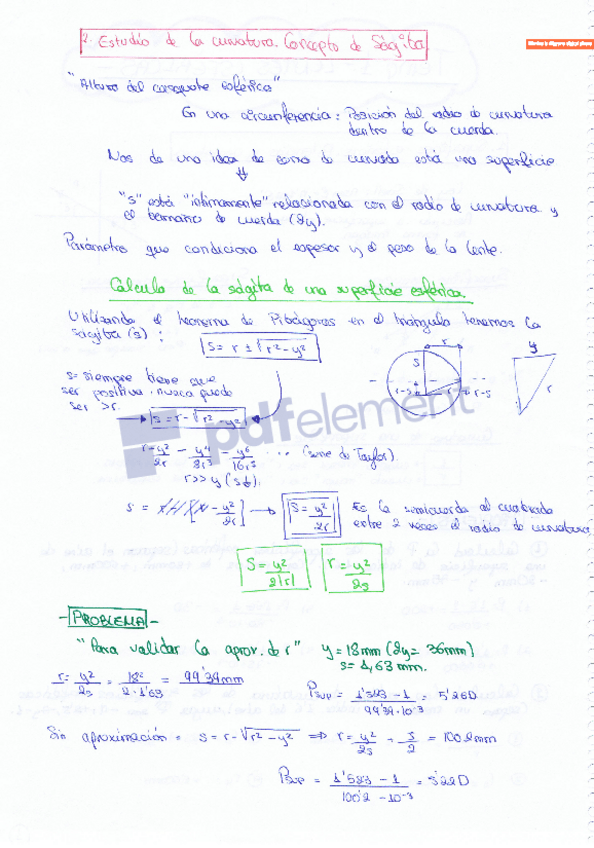 2. Estudio de la curvatura. Concepto de Ságita
"Altura del casquete esférico"
En una circunferencia: Posición del radio de curvatura
dentro de la cuerda.
Nos da una idea de como de curvada está una superficie
⇓
"s" está "íntimamente" relacionada con el radio de curvatura y
el tamaño de cuerda (2y).
Parámetro que condiciona el espesor y el peso de la lente.
Cálculo de la ságita de una superficie esférica.
Utilizando el teorema de Pitágoras en el triángulo tenemos la
ságita (s) :
S = r ± √r² - y²
r
S
r-s
r-s
y
r
s = siempre tiene que
ser positiva. nunca puede
ser > r.
S = r - √r² - y²
pdfelement
r - y²/2r - y⁴/8r³ - y⁶/16r⁵ ... (Serie de Taylor)
r >> y (s↓).
S = y²/2r
Es la semicuerda al cuadrado
entre 2 veces el radio de curvatura.
S = y²/2|r|
r = y²/2s
- PROBLEMA -
"Para validar la aprox. de r" y = 18 mm (2y = 36mm)
s = 1,63 mm.
r = y²/2s = 18²/2·1'63 = 99'39mm
Psup = 1'523 - 1 / 99'39·10⁻³ = 5'26D
Sin aproximación = s = r - √r² - y² ⇒ r = y²/2s - s/2 = 100'2mm
Psup = 1'523 - 1 / 100'2 - 10⁻³ = 5'22D